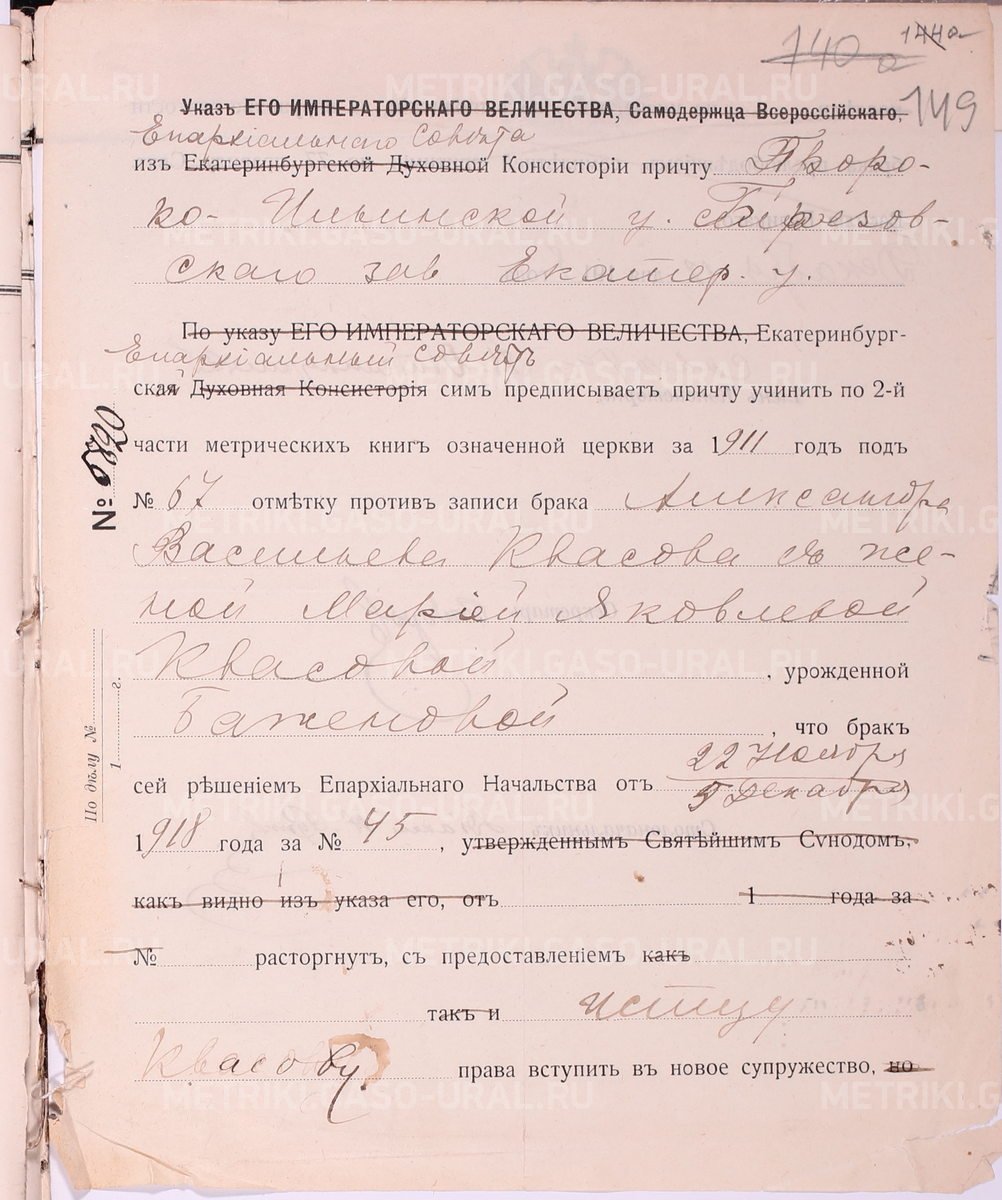 140 а 144а
149
Указъ ЕГО ИМПЕРАТОРСКАГО ВЕЛИЧЕСТВА, Самодержца Всероссійскаго,
Епархіальнаго Совѣта
изъ Екатеринбургской Духовной Консисторіи причту Пророко-
Ильинской ц. Березов-
скаго зав Екатер. у.
По указу ЕГО ИМПЕРАТОРСКАГО ВЕЛИЧЕСТВА, Екатеринбург-
Епархіальный Совѣтъ
ская Духовная Консисторія симъ предписываетъ причту учинить по 2-й
части метрическихъ книгъ означенной церкви за 1911 годъ подъ
№ 67 отмѣтку противъ записи брака Александра
Васильева Квасова съ же-
ной Маріей Яковлевой
Квасовой, урожденной
Баженовой, что бракъ
сей рѣшеніемъ Епархіальнаго Начальства отъ 22 Ноября
5 Декабря
1918 года за № 45, утвержденнымъ Святѣйшимъ Сѵнодомъ,
какъ видно изъ указа его, отъ 1 года за
№ расторгнутъ, съ предоставленіемъ какъ
такъ и истцу
Квасову права вступить въ новое супружество, но
№ 5820
По дѣлу №
1 г.
METRIKI.GASO-URAL.RU